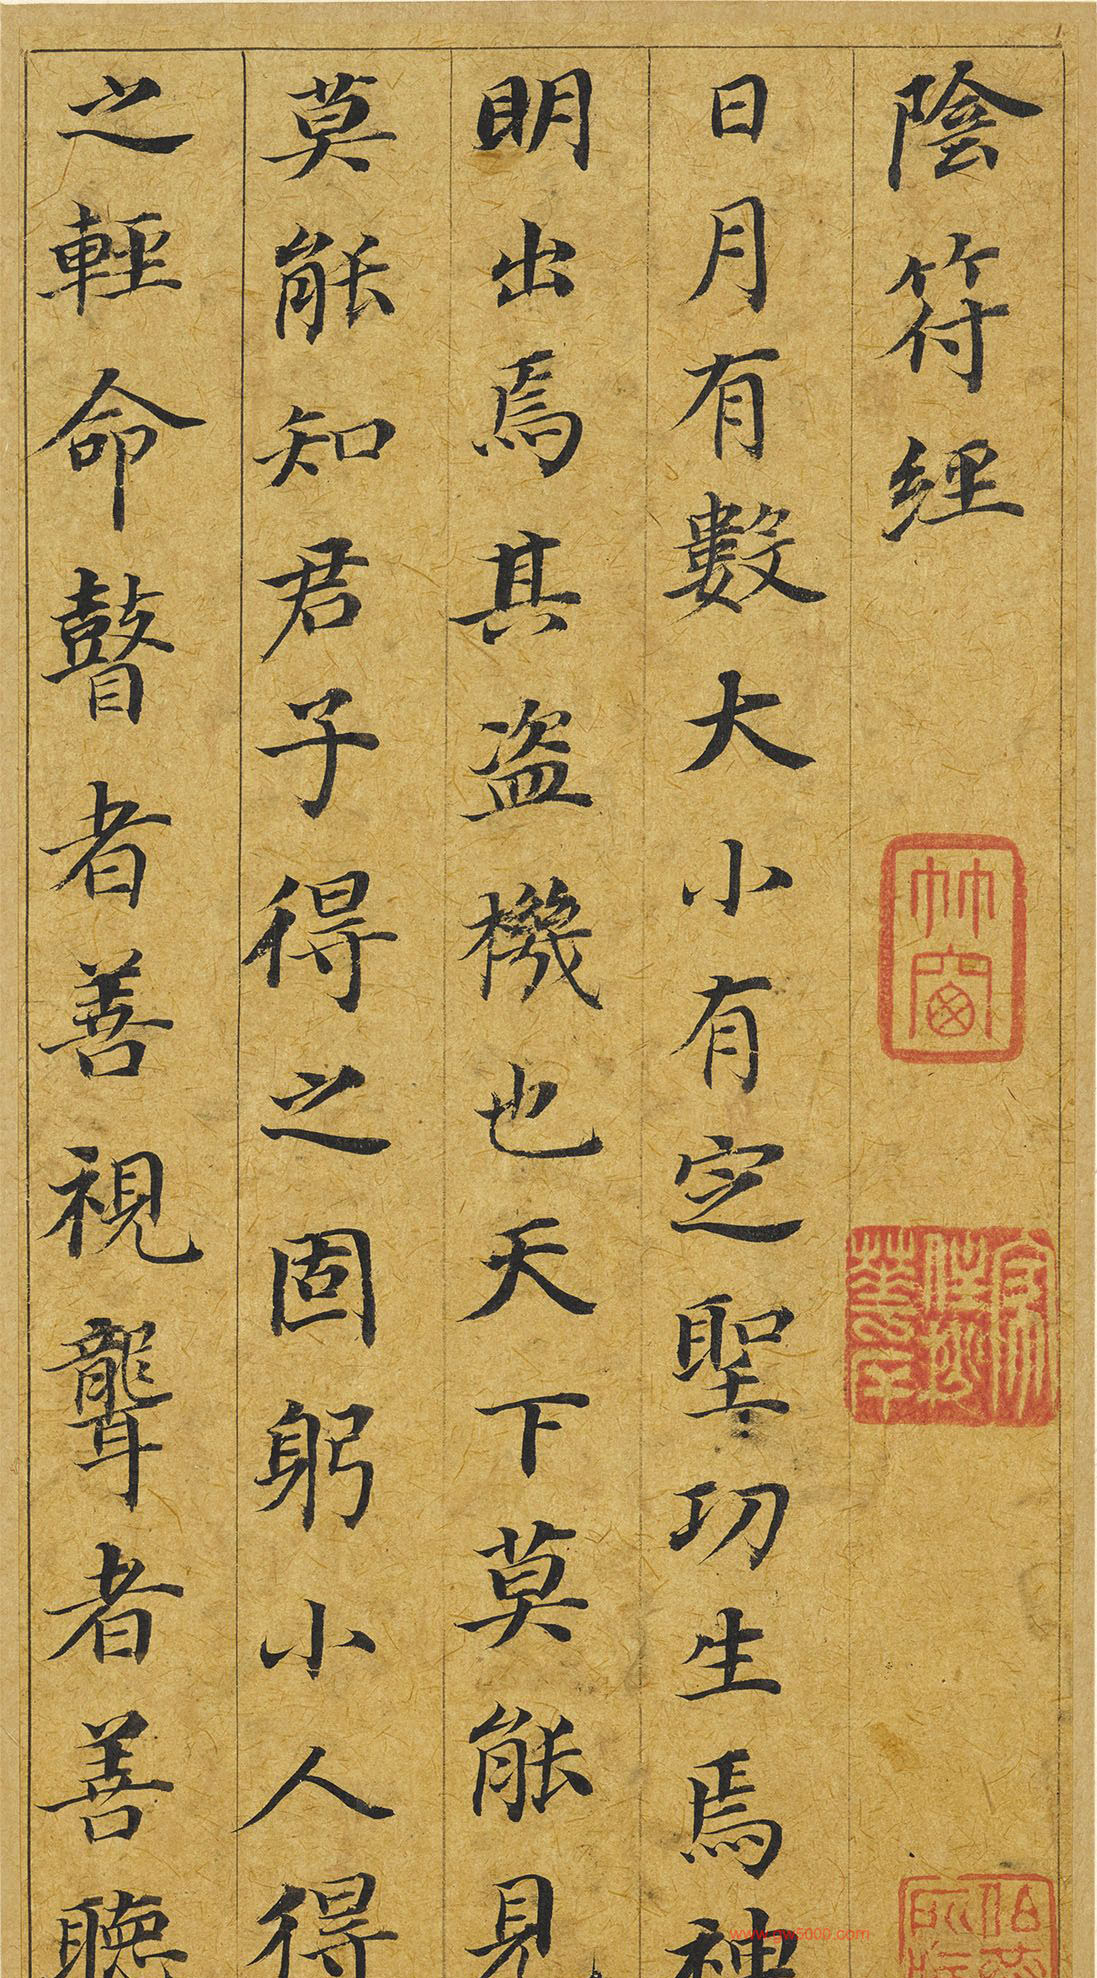 陰符經
竹窗
日月有數大小有定聖功生焉神
明出焉其盗機也天下莫能見
莫能知君子得之固躬小人得
之輕命瞽者善視聾者善聽